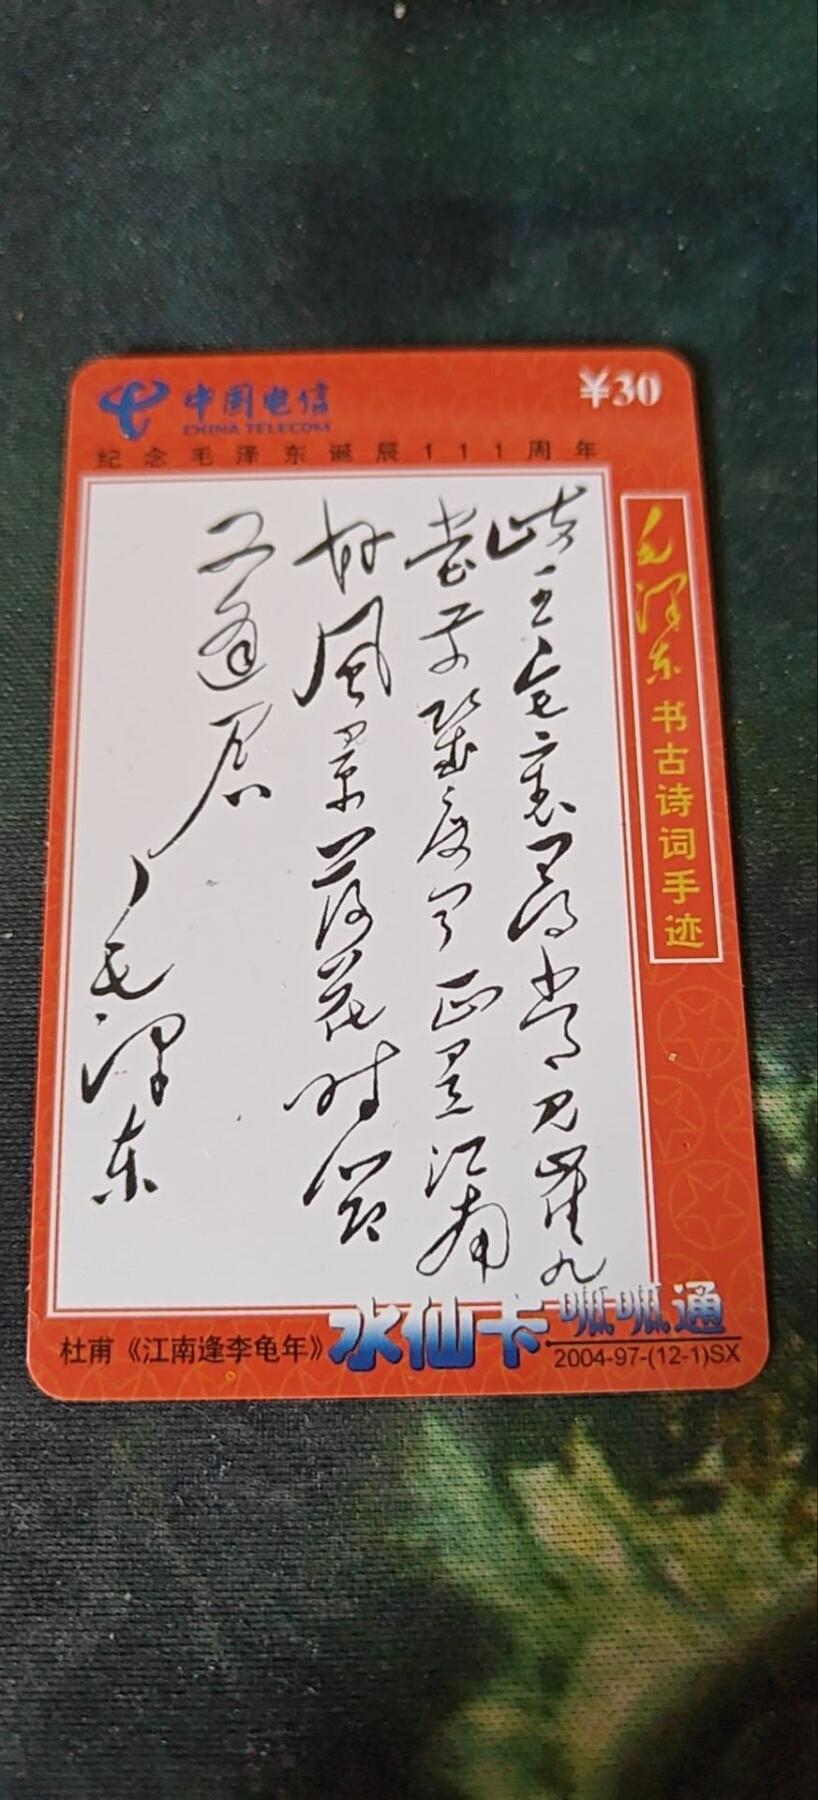 中国电信
CHINA TELECOM
¥30
纪念毛泽东诞辰111周年
毛泽东书古诗词手迹
岐王宅裏尋常見崔九
堂前幾度聞正是江南
好風景落花時節
又逢君
毛泽东
杜甫《江南逢李龟年》
水仙卡
呱呱通
2004-97-(12-1)SX